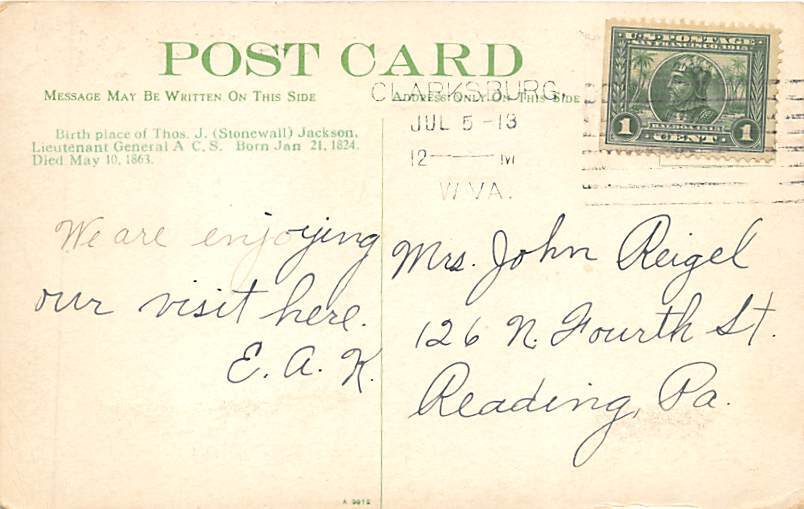 POST CARD
MESSAGE MAY BE WRITTEN ON THIS SIDE
ADDRESS ONLY ON THIS SIDE
CLARKSBURG.
JUL 5 -13
12 — M
W.VA.
U.S. POSTAGE
SAN FRANCISCO, 1915
BALBOA 1513
1 CENT 1
Birth place of Thos. J. (Stonewall) Jackson,
Lieutenant General A C. S. Born Jan 21, 1824.
Died May 10, 1863.
We are enjoying
our visit here.
E. A. K.
Mrs. John Reigel
126 N. Fourth St.
Reading, Pa.